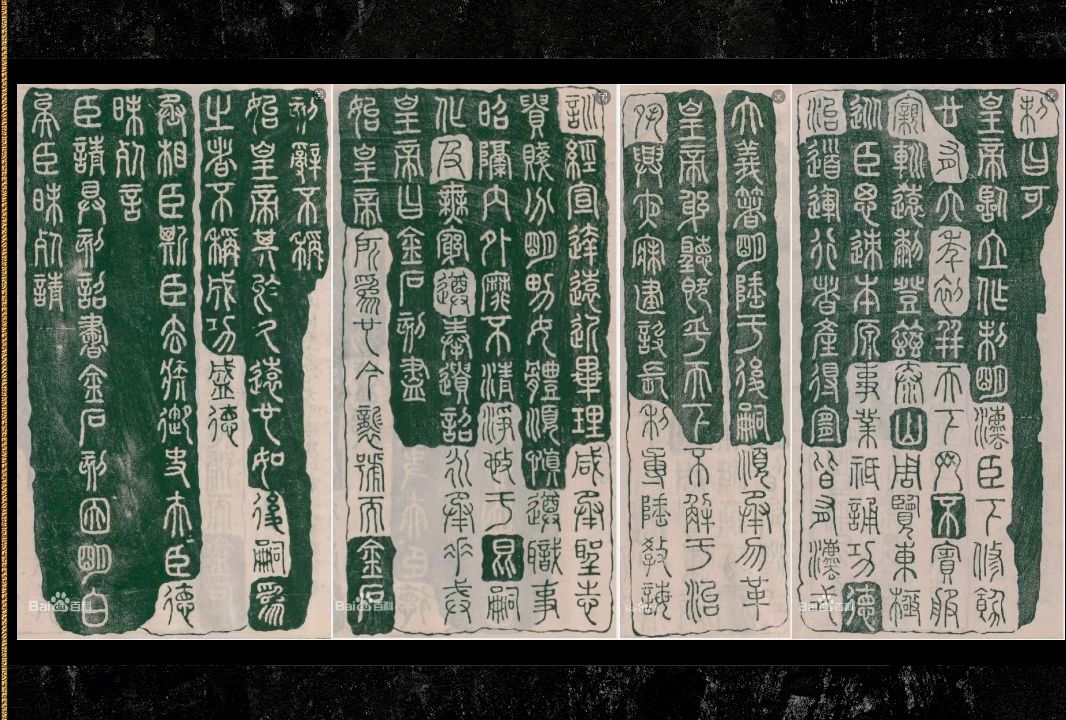 制曰可
皇帝臨立作制明灋臣下修飭
廿有六年初并天下罔不賓服
寴輒遠黎登茲泰山周覽東極
從臣思迹本原事業祗誦功德
治道運行者產得宜皆有灋式
大義箸明陲于後嗣順承勿革
皇帝躬聽既平天下不懈于治
夙興夜寐建設長利專隆教誨
訓經宣達遠近畢理咸承聖志
貴賤分明男女體順慎遵職事
昭隔內外靡不清淨施于昆嗣
化及無窮遵奉遺詔永承重戒
皇帝曰金石刻盡
始皇帝所爲也今襲號而金石
刻辭不稱
始皇帝其於久遠也如後嗣爲
之者不稱成功盛德
丞相臣斯臣去疾御史夫臣德
昧死言
臣請具刻詔書金石刻因明白
矣臣昧死請
Bai百科
Bai百科
Bai百科